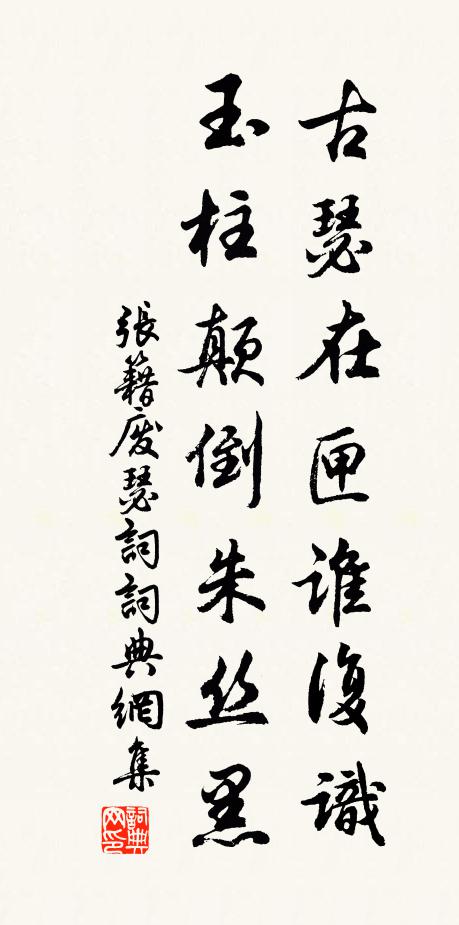 古瑟在匣谁復識
玉柱颠倒朱丝黑
張籍廢瑟詞詞典網集
詞典网印